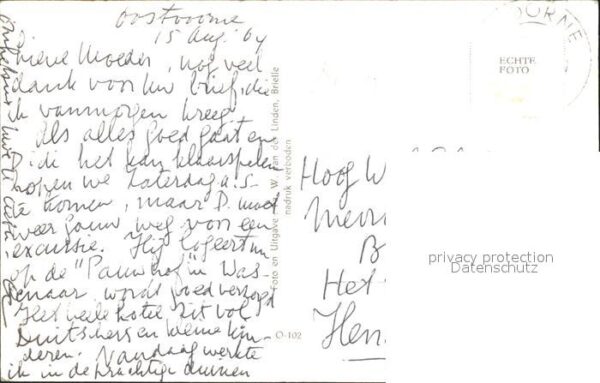 Oostvoorne
15 Aug. '64
Lieve Moeder, nog veel
dank voor Uw brief, die
ik vanmorgen kreeg.
Als alles goed gaat en
Didi het kan klaarspelen
hopen we Zaterdag a.s.
te komen, maar D. moet
weer gauw weg voor een
excursie. Hij logeert nu
op de "Pauwhof" in Was-
senaar, wordt goed verzorgd
Het hele hotel zit vol
Duitschers en kleine kin-
deren. Vandaag werkte
ik in de prachtige duinen
Foto en Uitgave W. van der Linden, Brielle
nadruk verboden
O-102
OORNE
ECHTE
FOTO
Hoog W
Mevr
B
Het
Hen
privacy protection
Datenschutz